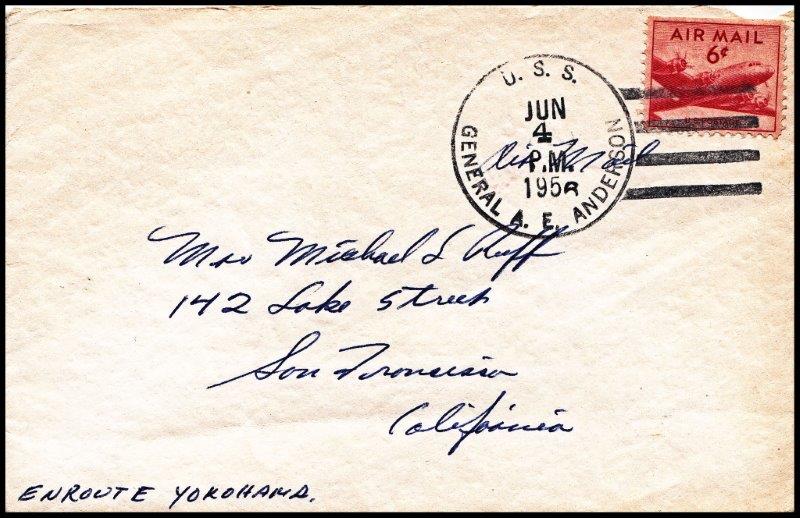 AIR MAIL
6¢
U. S. S.
JUN
4
P.M.
1956
GENERAL A. E. ANDERSON
Air Mail
Mrs Michael L Ruff
142 Lake Street
San Francisco
California
ENROUTE YOKOHAMA.